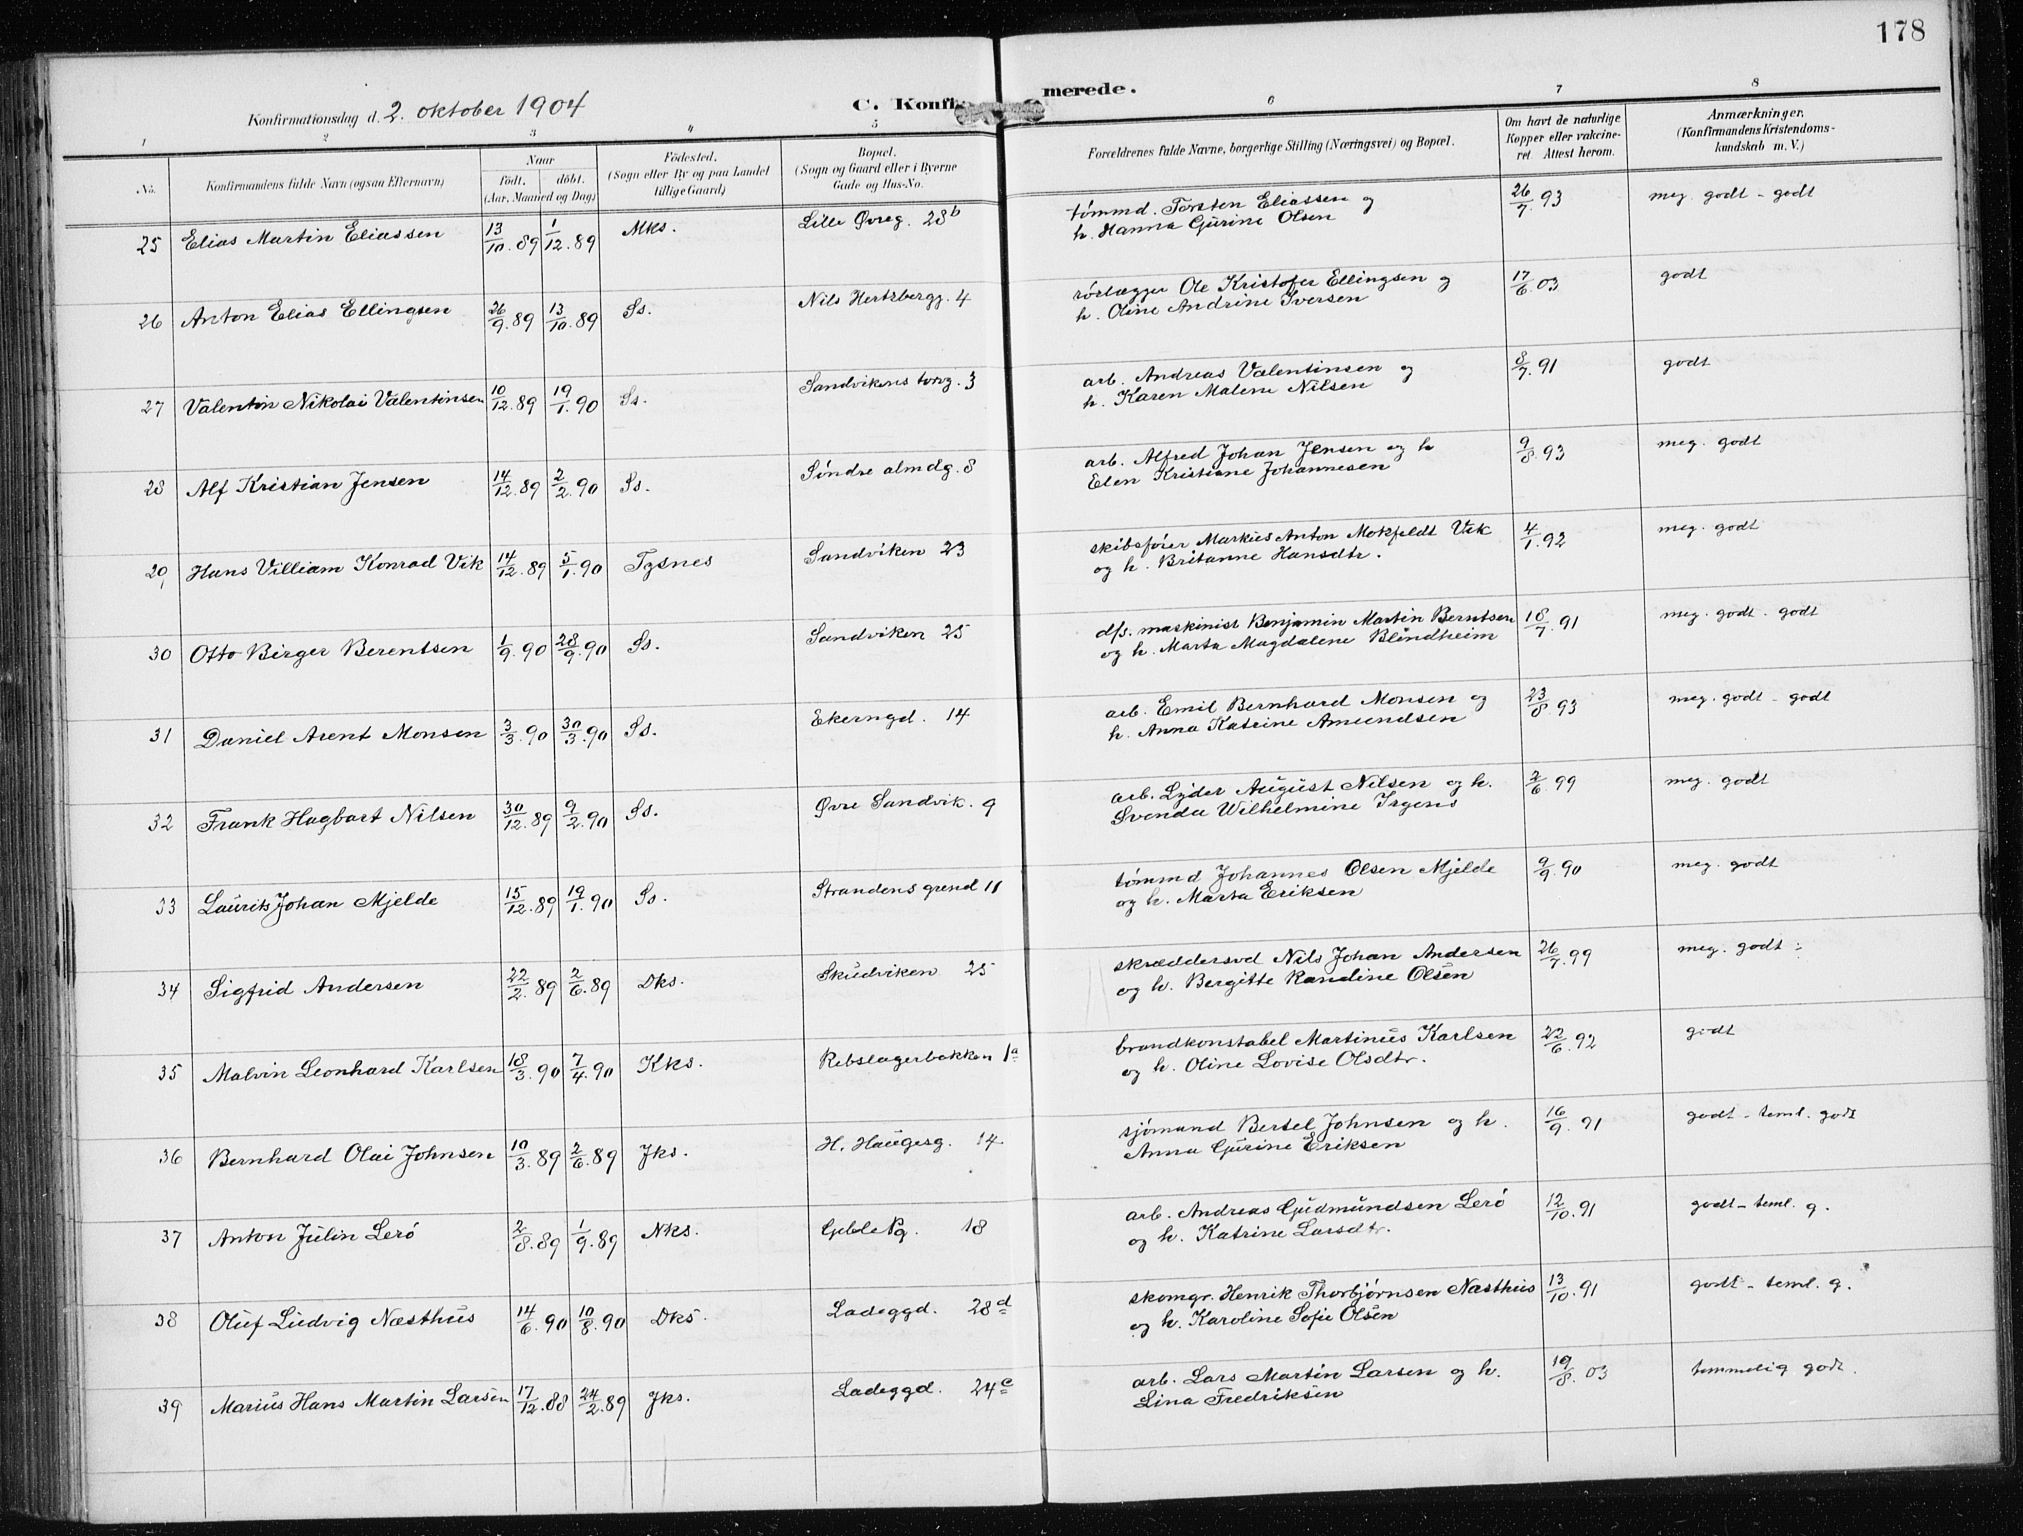 178
Konfirmationsdag d. 2. oktober 1904
C. Konfirmerede.
1 2 3 4 5 6 7 8
No. Konfirmandens fulde Navn (ogsaa Efternavn) Naar født. døbt. (Aar, Maaned og Dag) Fødested. (Sogn eller By og paa Landet tillige Gaard) Bopæl. (Sogn og Gaard eller i Byerne Gade og Hus-No. Forældrenes fulde Navne, borgerlige Stilling (Næringsvei) og Bopæl. Om havt de naturlige Kopper eller vakcineret Attest herom. Anmærkninger. (Konfirmandens Kristendomskundskab m. V.)
25 Elias Martin Eliassen 13/10.89 1/12.89 Mks. Lille Øvreg. 28b tømmd. Torsten Eliassen og 26/7.93 meg. godt - godt
h. Hanna Gurine Olsen
26 Anton Elias Ellingsen 26/9.89 13/10.89 Ss. Nils Hertzbergg. 4 rørlægger Ole Kristofer Ellingsen og 17/6.03 godt
h. Oline Andrine Iversen
27 Valentin Nikolai Valentinsen 10/12.89 19/1.90 Ss. Sandvikens torvg. 3 arb. Andreas Valentinsen og 8/7.91 godt
h. Karen Malene Nilsen
28 Alf Kristian Jensen 14/12.89 2/2.90 Ss. Søndre almdg. 8 arb. Alfred Johan Jensen og h 9/8.93 meg. godt
Elen Kristiane Johannesen
29 Hans Villiam Konrad Vik 14/12.89 5/1.90 Tysnes Sandviken 23 skibsfører Markus Anton Mokfeldt Vik 4/1.92 meg. godt
og h. Britanne Hansdtr.
30 Otto Birger Berentsen 1/9.90 28/9.90 Ss. Sandviken 25 dfs. maskinist Benjamin Martin Berntsen 18/7.91 meg. godt - godt
og h. Marta Magdalene Blindheim
31 Daniel Arent Monsen 3/3.90 30/3.90 Ss. Ekerngd. 14 arb. Emil Bernhard Monsen og 23/8.93 meg. godt - godt
h. Anna Katrine Amundsen
32 Frank Hagbart Nilsen 30/12.89 9/2.90 Ss. Øvre Sandvik. 9 arb. Lyder August Nilsen og h. 2/6.99 meg. godt
Svenda Wilhelmine Irgens
33 Laurits Johan Mjelde 15/12.89 19/1.90 Ss. Strandens grend 11 tømmd Johannes Olsen Mjelde 9/9.90 meg. godt
og h. Marta Eriksen
34 Sigfrid Andersen 22/2.89 2/6.89 Dks. Skudviken 25 skræddersvd Nils Johan Andersen 26/7.99 meg. godt
og h. Bergitte Randine Olsen
35 Malvin Leonhard Karlsen 18/3.90 7/4.90 Kks. Rebslagerbakken 1a brandkonstabel Martinus Karlsen 22/6.92 godt
og h. Oline Lovise Olsdtr.
36 Bernhard Olai Johnsen 10/3.89 2/6.89 Jks. H. Haugesg. 14 sjømand Bertel Johnsen og h. 16/9.91 godt - teml. godt
Anna Gurine Eriksen
37 Anton Julin Lerø 2/8.89 1/9.89 Nks. Geble Pg. 18 arb. Andreas Gudmundsen Lerø 12/10.91 godt - teml. g.
og h. Katrine Larsdtr.
38 Oluf Ludvig Næsthus 14/6.90 10/8.90 Dks. Ladeggd. 28d skomgr. Henrik Thorbjørnsen Næsthus 13/10.91 godt - teml. g.
og h. Karoline Sofie Olsen
39 Marius Hans Martin Larsen 17/12.88 24/2.89 Jks. Ladeggd. 24c arb. Lars Martin Larsen og h. 19/8.03 temmelig godt.
Lina Fredriksen